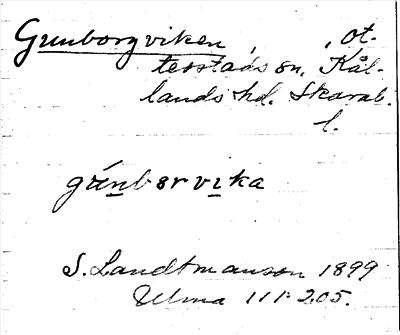 Grunborgviken, , Ot-
testads sn, Kål-
lands hd. Skarab.
l.
grúnbervika
S. Landtmanson 1899
Ulma 111:205.